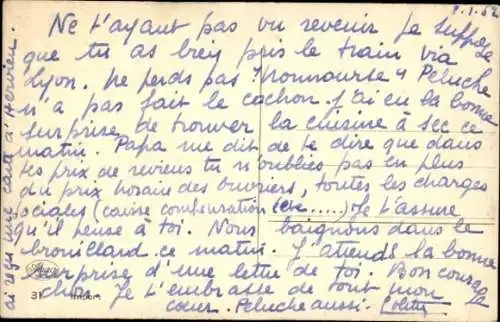 9.1.52
Ne t'ayant pas vu revenir je suppose
que tu as bien pris le train via
Lyon. Ne perds pas Peluche
n'a pas fait le cochon. J'ai eu la bonne
surprise de trouver la cuisine à sec ce
matin. Papa me dit de te dire que dans
tes prix de reviens tu n'oublies pas en plus
du prix horaire des ouvriers, toutes les charges
sociales (caisse compensation etc .....) Je t'assure
qu'il pense à toi. Nous baignons dans le
brouillard ce matin. J'attends la bonne
surprise d'une lettre de toi. Bon courage
chou. Je t'embrasse de tout mon
cœur. Peluche aussi. Colette
J'ai reçu une carte d'
31 Import